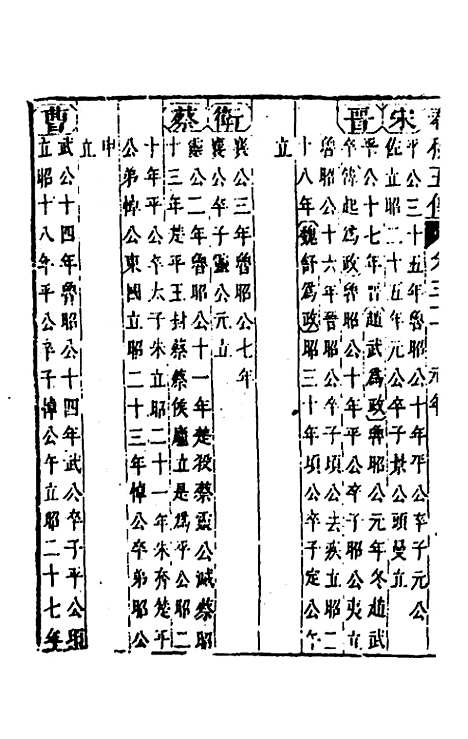 春秋五傳 卷三二 元年
宋 平公三十五年魯昭公十年平公卒子元公
佐立昭二十五年元公卒子景公頭曼立
晉 平公十七年晉趙武為政魯昭公元年冬趙武
卒韓起為政魯昭公十年平公卒子昭公夷立
魯昭公十六年晉昭公卒子頃公去疾立昭二
十八年魏舒為政昭三十年頃公卒子定公午
立
衛 襄公三年魯昭公七年
襄公卒子靈公元立
蔡 靈公二年魯昭公十一年楚殺蔡靈公滅蔡昭
十三年楚平王封蔡蔡侯廬立是為平公昭二
十年平公卒太子朱立昭二十一年朱奔楚平
公弟悼公東國立昭二十三年悼公卒弟昭公
申立
曹 武公十四年魯昭公十四年武公卒子平公須
立昭十八年平公卒子悼公午立昭二十七年